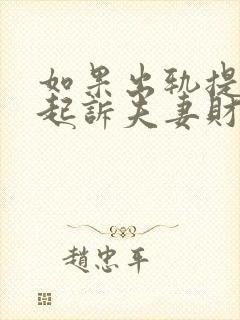 如果出轨提
起訴夫妻財
趙忠平